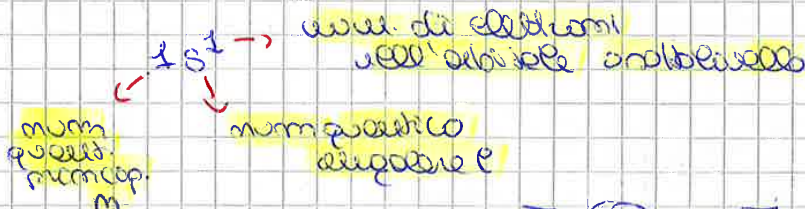 num. di elettroni
1s¹ → nell'orbitale o sottolivello
num
quant.
princip.
n
num quantico
angolare l